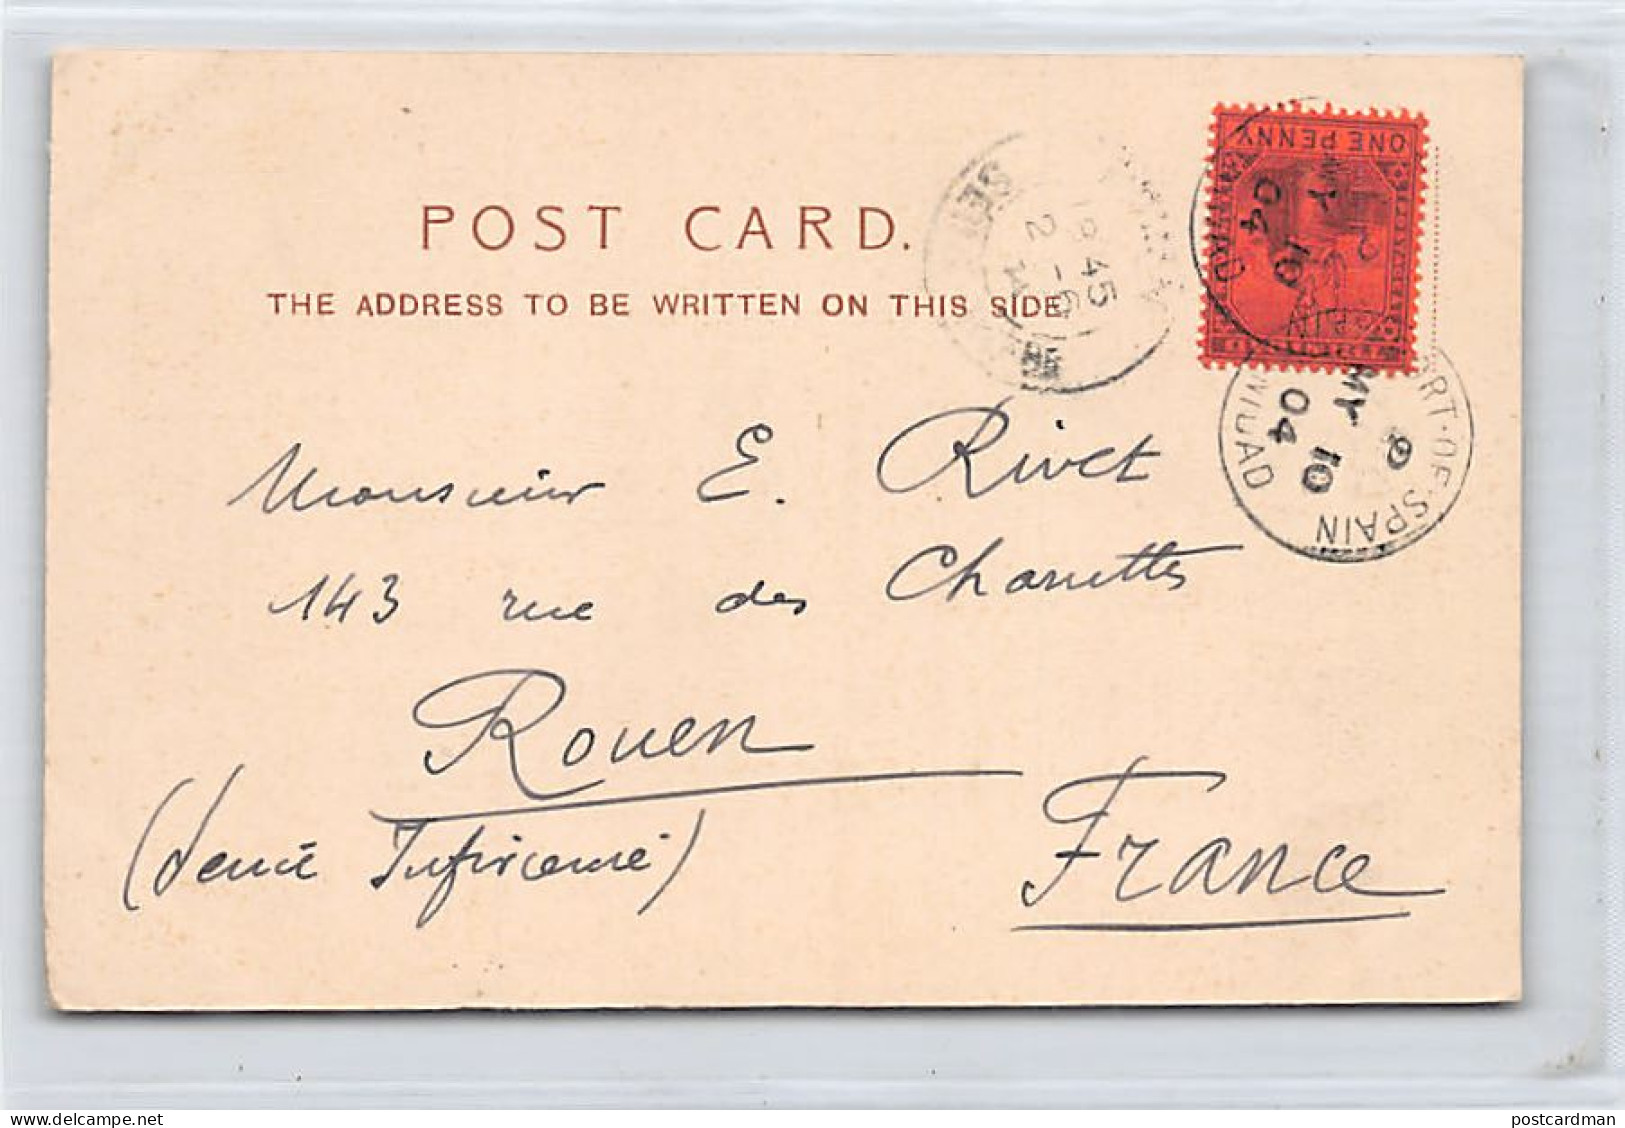 POST CARD.
THE ADDRESS TO BE WRITTEN ON THIS SIDE
ONE PENNY
MY 10 04
PORT-OF-SPAIN
MY 10 04
TRINIDAD
SEINE
2 -6
Monsieur E. Rivet
143 rue des Charrettes
Rouen
(Seine Inférieure)
France
postcardman